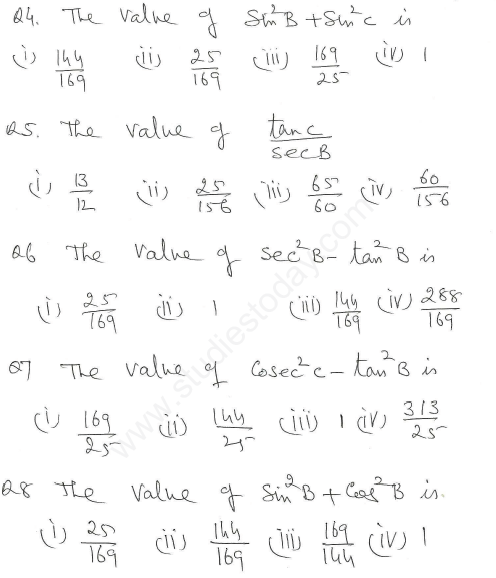 Q4. The value of Sin²B + Sin²C is
(i) 144/169 (ii) 25/169 (iii) 169/25 (iv) 1
Q5. The value of tan C/sec B
(i) 13/12 (ii) 25/156 (iii) 65/60 (iv) 60/156
Q6 The value of Sec²B - tan²B is
(i) 25/169 (ii) 1 (iii) 144/169 (iv) 288/169
Q7 The value of Cosec²C - tan²B is
(i) 169/25 (ii) 144/25 (iii) 1 (iv) 313/25
Q8 The value of Sin²B + Cos²B is.
(i) 25/169 (ii) 144/169 (iii) 169/144 (iv) 1
www.studiestoday.com